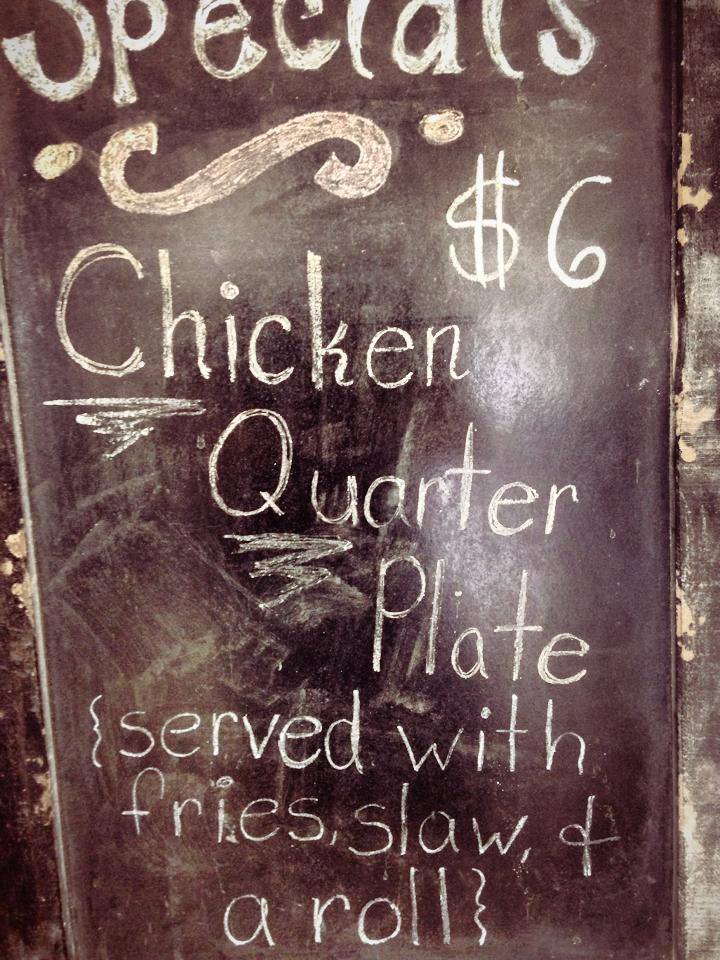 Specials
$6
Chicken
Quarter
Plate
{served with
fries, slaw, &
a roll}